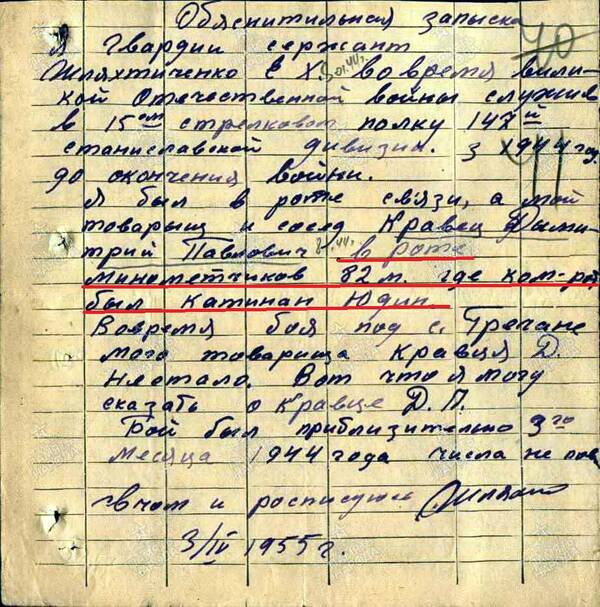 Обяснительная запыска
70
Я Гвардии сержант
Шляхтиченко Е Х. во время вили-
кой Отечественной войны служив
в 15ом стрелковом полку 147й
станиславской дивизии. з 1944 год
до окончения войни.
Я был в роте связи, а мой
товарыщ и сосед Кравец Дими-
трий Павлович в роте
минометчиков 82м. где ком-рот
был катинан Юдин.
Вовремя боя под с. Гречане
мого товарища Кравця Д.
Нестало. Вот что я могу
сказать о Кравце Д. П.
Бой был приблизительно 3го
месяца 1944 года числа не пов
вчом и росписуюсь
3/IV 1955 г.